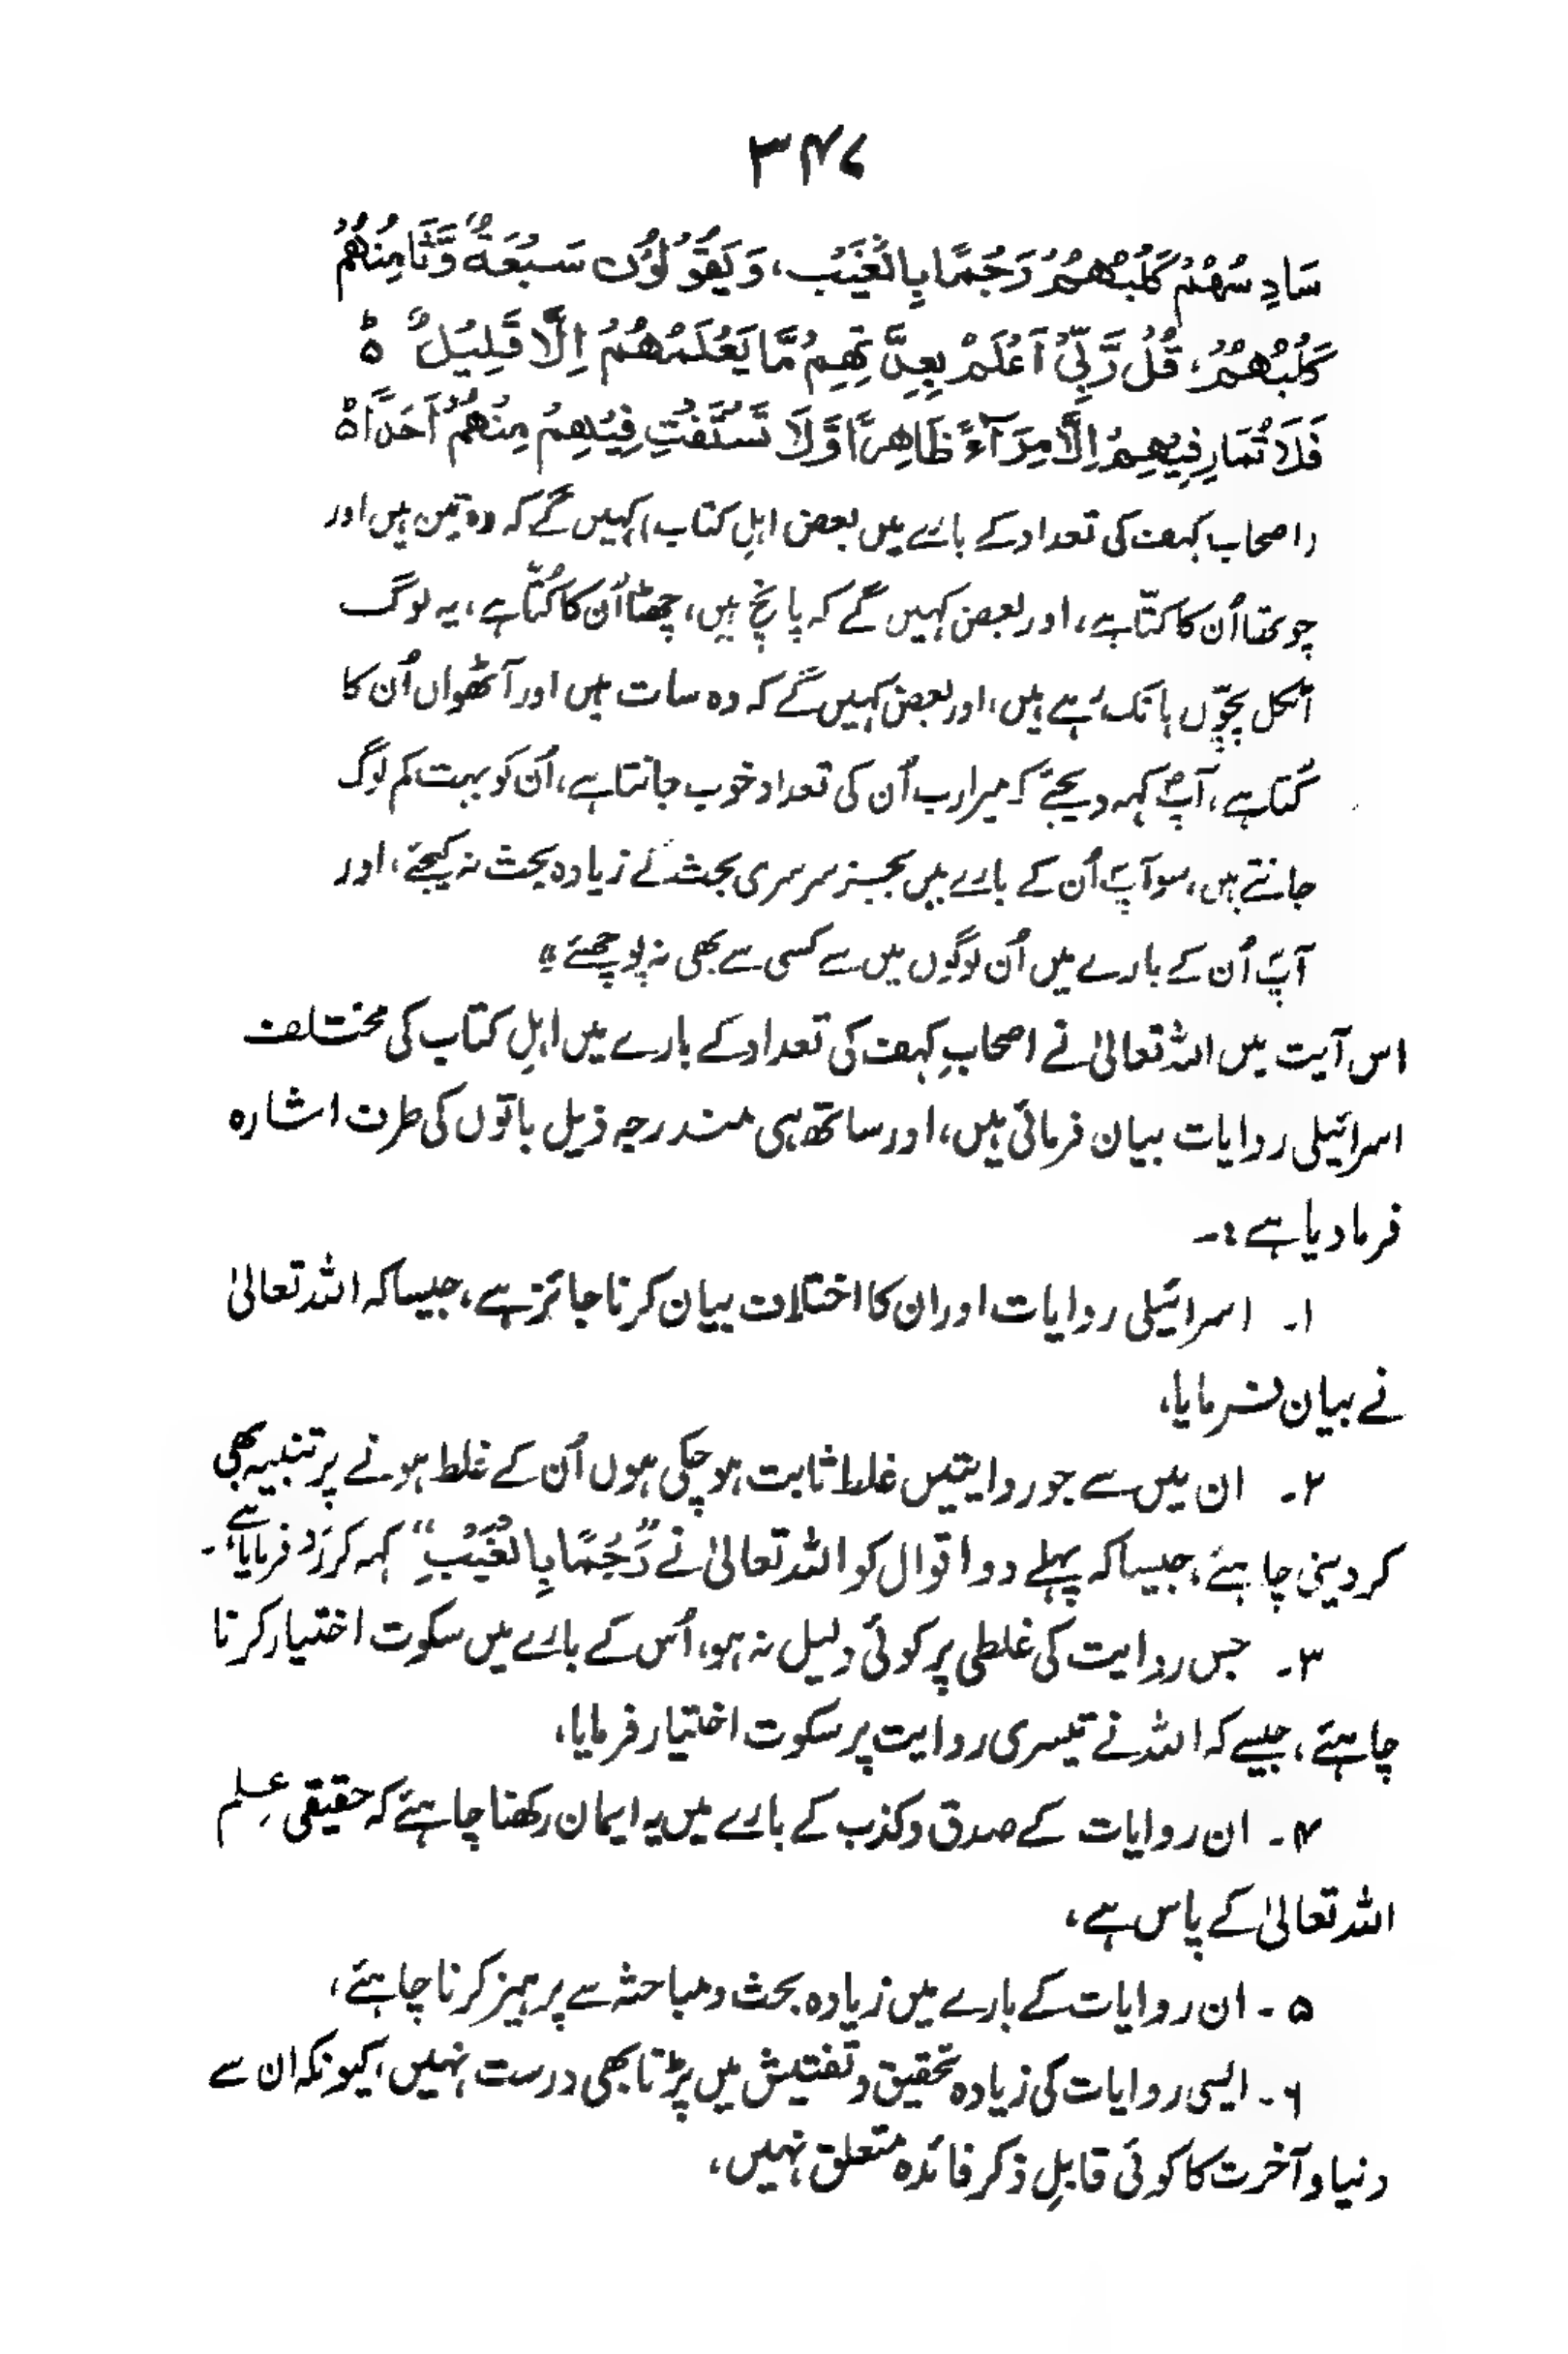 ۳۴۷
سَادِسُهُمْ كَلْبُهُمْ رَجْمًا بِالْغَيْبِ، وَيَقُوْلُوْنَ سَبْعَةٌ وَّثَامِنُهُمْ
كَلْبُهُمْ، قُلْ رَّبِّيْ اَعْلَمُ بِعِدَّتِهِمْ مَّا يَعْلَمُهُمْ اِلَّا قَلِيْلٌ ۵
فَلَا تُمَارِ فِيْهِمْ اِلَّا مِرَآءً ظَاهِرًا وَّلَا تَسْتَفْتِ فِيْهِمْ مِنْهُمْ اَحَدًا ۵
(اصحاب کہف کی تعداد کے بارے میں بعض اہلِ کتاب) کہیں گے کہ وہ تین ہیں اور
چوتھا اُن کا کتّا ہے، اور بعض کہیں گے کہ پانچ ہیں، چھٹا اُن کا کُتّا ہے، یہ لوگ
اٹکل پچّو ں ہانک رہے ہیں، اور بعض کہیں گے کہ وہ سات ہیں اور آٹھواں اُن کا
کُتا ہے، آپؐ کہہ دیجئے کہ میرا رب اُن کی تعداد خوب جانتا ہے، اُن کو بہت کم لوگ
جانتے ہیں، سو آپؐ اُن کے بارے میں بجز سرسری بحث کے زیادہ بحث نہ کیجئے، اور
آپؐ اُن کے بارے میں اُن لوگوں میں سے کسی سے بھی نہ پوچھئے"
اس آیت میں اللہ تعالیٰ نے اصحابِ کہف کی تعداد کے بارے میں اہلِ کتاب کی مختلف
اسرائیلی روایات بیان فرمائی ہیں، اور ساتھ ہی مندرجہ ذیل باتوں کی طرف اشارہ
فرما دیا ہے :۔
۱۔ اسرائیلی روایات اور ان کا اختلاف بیان کرنا جائز ہے، جیسا کہ اللہ تعالیٰ
نے بیان فرمایا،
۲۔ ان میں سے جو روایتیں غلط ثابت ہو چکی ہوں اُن کے غلط ہونے پر تنبیہ بھی
کر دینی چاہئے، جیسا کہ پہلے دو اقوال کو اللہ تعالیٰ نے "رَجْمًا بِالْغَيْبِ" کہہ کر رَد فرمایا ہے۔
۳۔ جس روایت کی غلطی پر کوئی دلیل نہ ہو، اُس کے بارے میں سکوت اختیار کرنا
چاہئے، جیسے کہ اللہ نے تیسری روایت پر سکوت اختیار فرمایا،
۴۔ ان روایات کے صدق و کذب کے بارے میں یہ ایمان رکھنا چاہئے کہ حقیقی عِلم
اللہ تعالیٰ کے پاس ہے،
۵۔ ان روایات کے بارے میں زیادہ بحث و مباحثہ سے پرہیز کرنا چاہئے،
۶۔ ایسی روایات کی زیادہ تحقیق و تفتیش میں پڑنا بھی درست نہیں، کیونکہ ان سے
دنیا و آخرت کا کوئی قابلِ ذکر فائدہ متعلق نہیں،